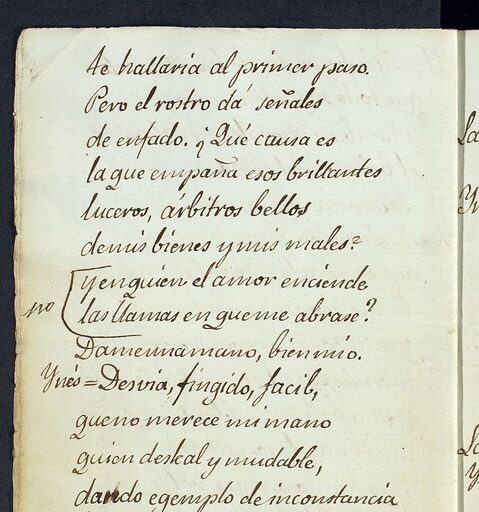 te hallaria al primer paso.
Pero el rostro dá señales
de enfado. ¿Qué causa es
la que empaña esos brillantes
luceros, árbitros bellos
de mis bienes y mis males?
y en quien el amor enciende
no
las llamas en que me abrase?
Dame una mano, bien mio.
Ynés = Desvia, fingido, facil,
que no merece mi mano
quien desleal y mudable,
dando egemplo de inconstancia
La